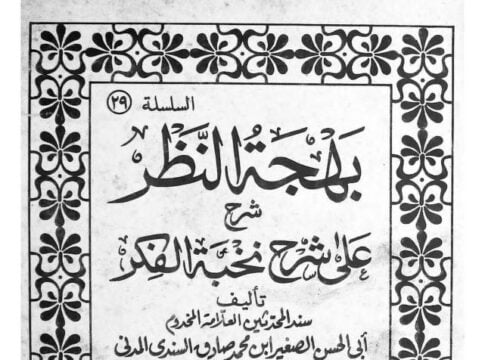 السلسلة ٢٩
بَهجَةُ النَّظَر
شرح
عَلى شرح نخبة الفكر
تأليف
سند المحدثين العلامة المخدوم
أبي الحسن الصغير ابن محمد صادق السندى المدنى